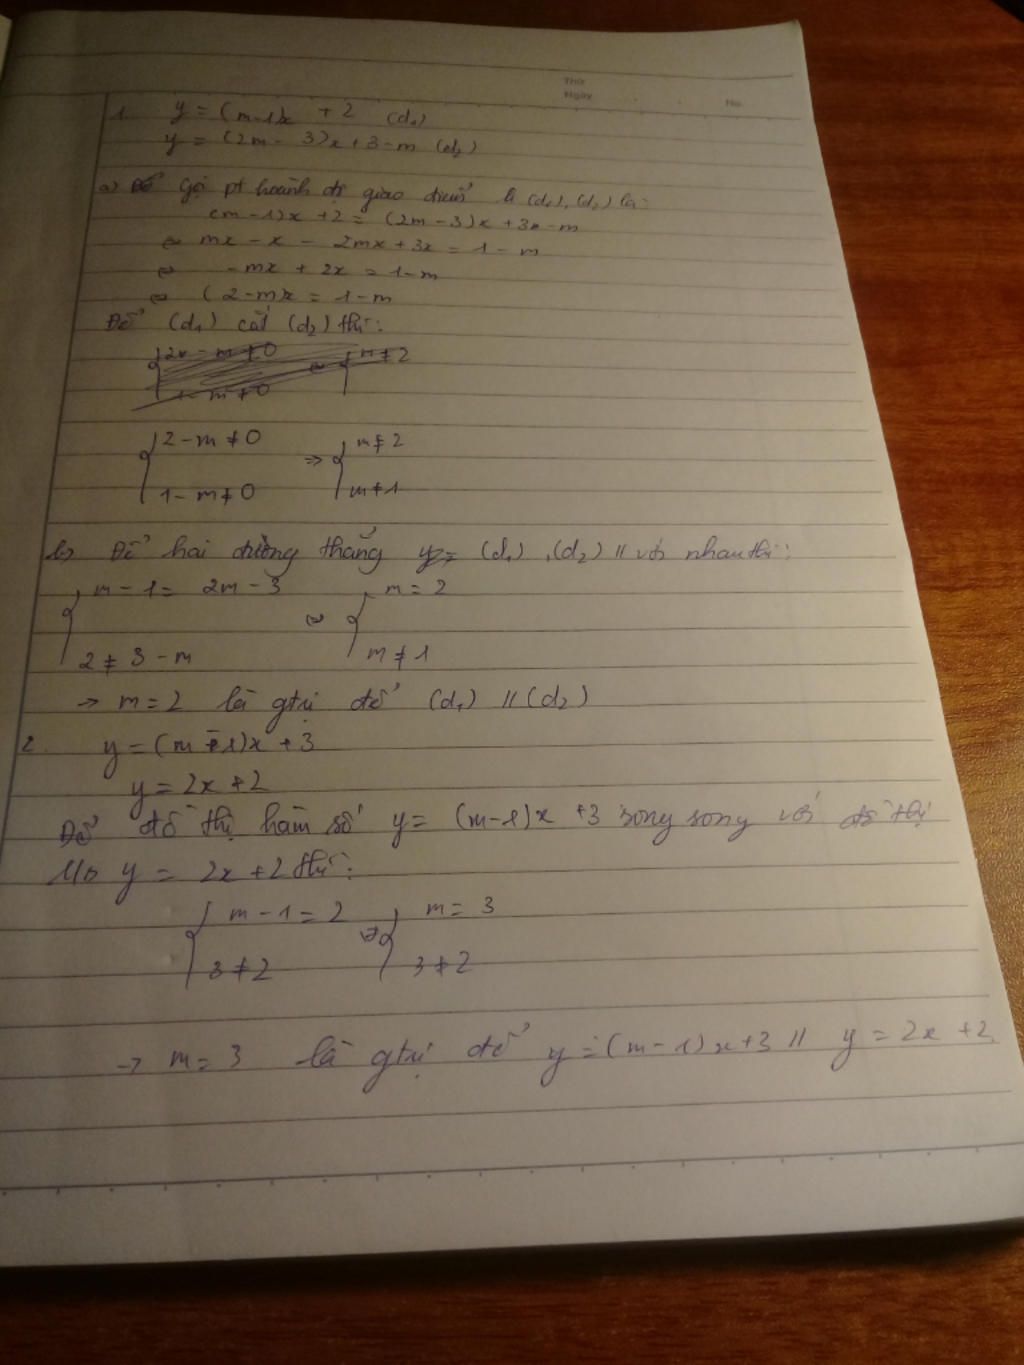 Thứ
Ngày No.
1. y = (m-1)x + 2 (d₁)
y = (2m - 3)x + 3 - m (d₂)
a) Gọi pt hoành độ giao điểm (d₁), (d₂) là:
(m - 1)x + 2 = (2m - 3)x + 3 - m
⇔ mx - x - 2mx + 3x = 1 - m
⇔ -mx + 2x = 1 - m
⇔ (2-m)x = 1 - m
Để (d₁) cắt (d₂) thì:
2 - m ≠ 0 ⇒ m ≠ 2
1 - m ≠ 0 m ≠ 1
b) Để hai đường thẳng (d₁), (d₂) // với nhau thì:
m - 1 = 2m - 3 ⇔ m = 2
2 ≠ 3 - m m ≠ 1
→ m = 2 là gtrị để (d₁) // (d₂)
2. y = (m - 1)x + 3
y = 2x + 2
Để đồ thị hàm số y = (m - 1)x + 3 song song với đồ thị
y = 2x + 2 thì:
m - 1 = 2 ⇒ m = 3
3 ≠ 2 3 ≠ 2
→ m = 3 là gtrị để y = (m - 1)x + 3 // y = 2x + 2